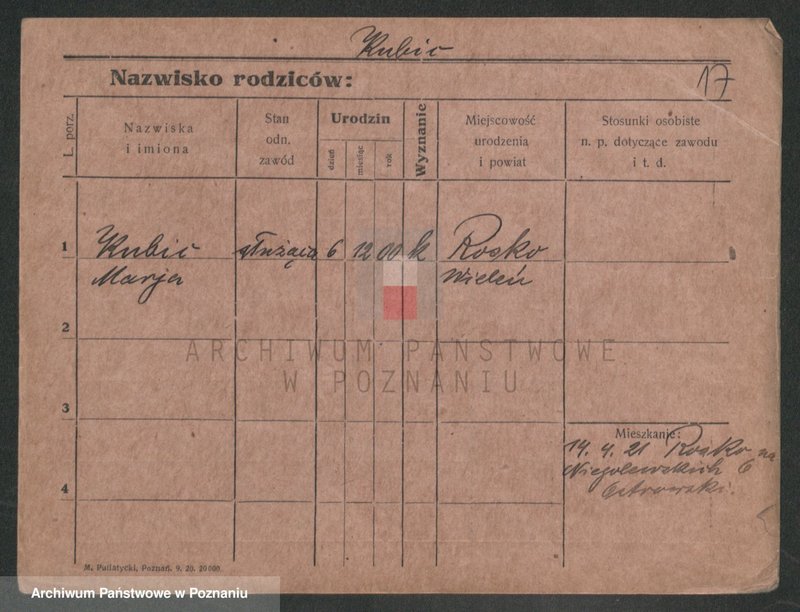 Kubic
Nazwisko rodziców:
17
L. porz.
Nazwiska
i imiona
Stan
odn.
zawód
Urodzin
dzień
miesiąc
rok
Wyznanie
Miejscowość
urodzenia
i powiat
Stosunki osobiste
n. p. dotyczące zawodu
i t. d.
1
Kubic służąca 6 12 00 k Rosko
Marja Wieleń
2
ARCHIWUM PAŃSTWOWE
W POZNANIU
3
Mieszkanie:
14. 4. 21 Rosko na
Niegolewskich 6
4
M. Putiatycki, Poznań. 9. 20. 20000
Archiwum Państwowe w Poznaniu